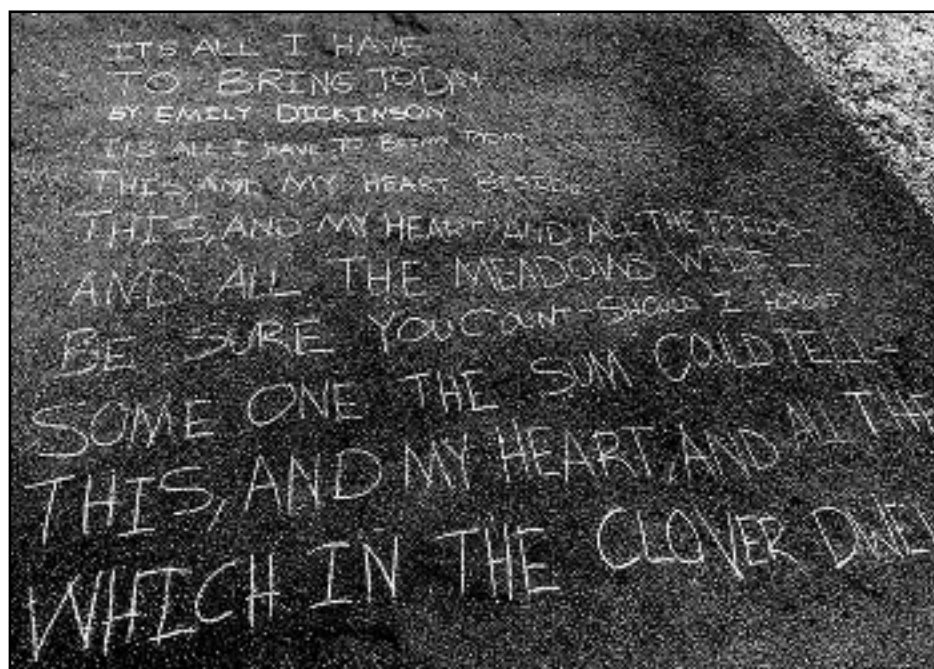 ITS ALL I HAVE
TO BRING TODAY
BY EMILY DICKINSON
ITS ALL I HAVE TO BRING TODAY
THIS, AND MY HEART BESIDE
THIS, AND MY HEART, AND ALL THE FIELDS—
AND ALL THE MEADOWS WIDE—
BE SURE YOU COUNT—SHOULD I FORGET
SOME ONE THE SUM COULD TELL—
THIS, AND MY HEART, AND ALL THE
WHICH IN THE CLOVER DWEL